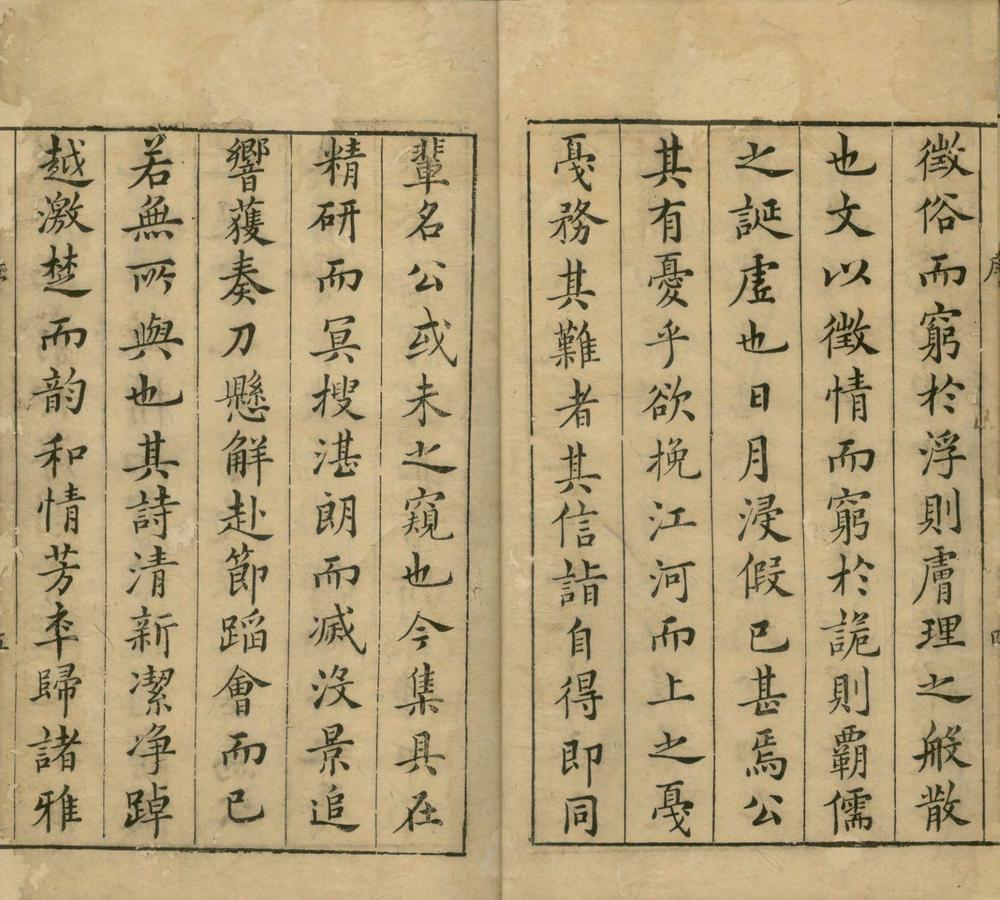 徵俗而窮於浮則膚理之般散
也文以徵情而窮於詭則覇儒
之誕虗也日月浸假已甚焉公
其有憂乎欲挽江河而上之戞
戞務其難者其信詣自得即同
輩名公或未之窺也今集具在
精研而冥搜湛朗而滅没景追
響蒦奏刀懸解赴節蹈會而已
若無所與也其詩清新潔净踔
越激楚而韵和情芳卒歸諸雅